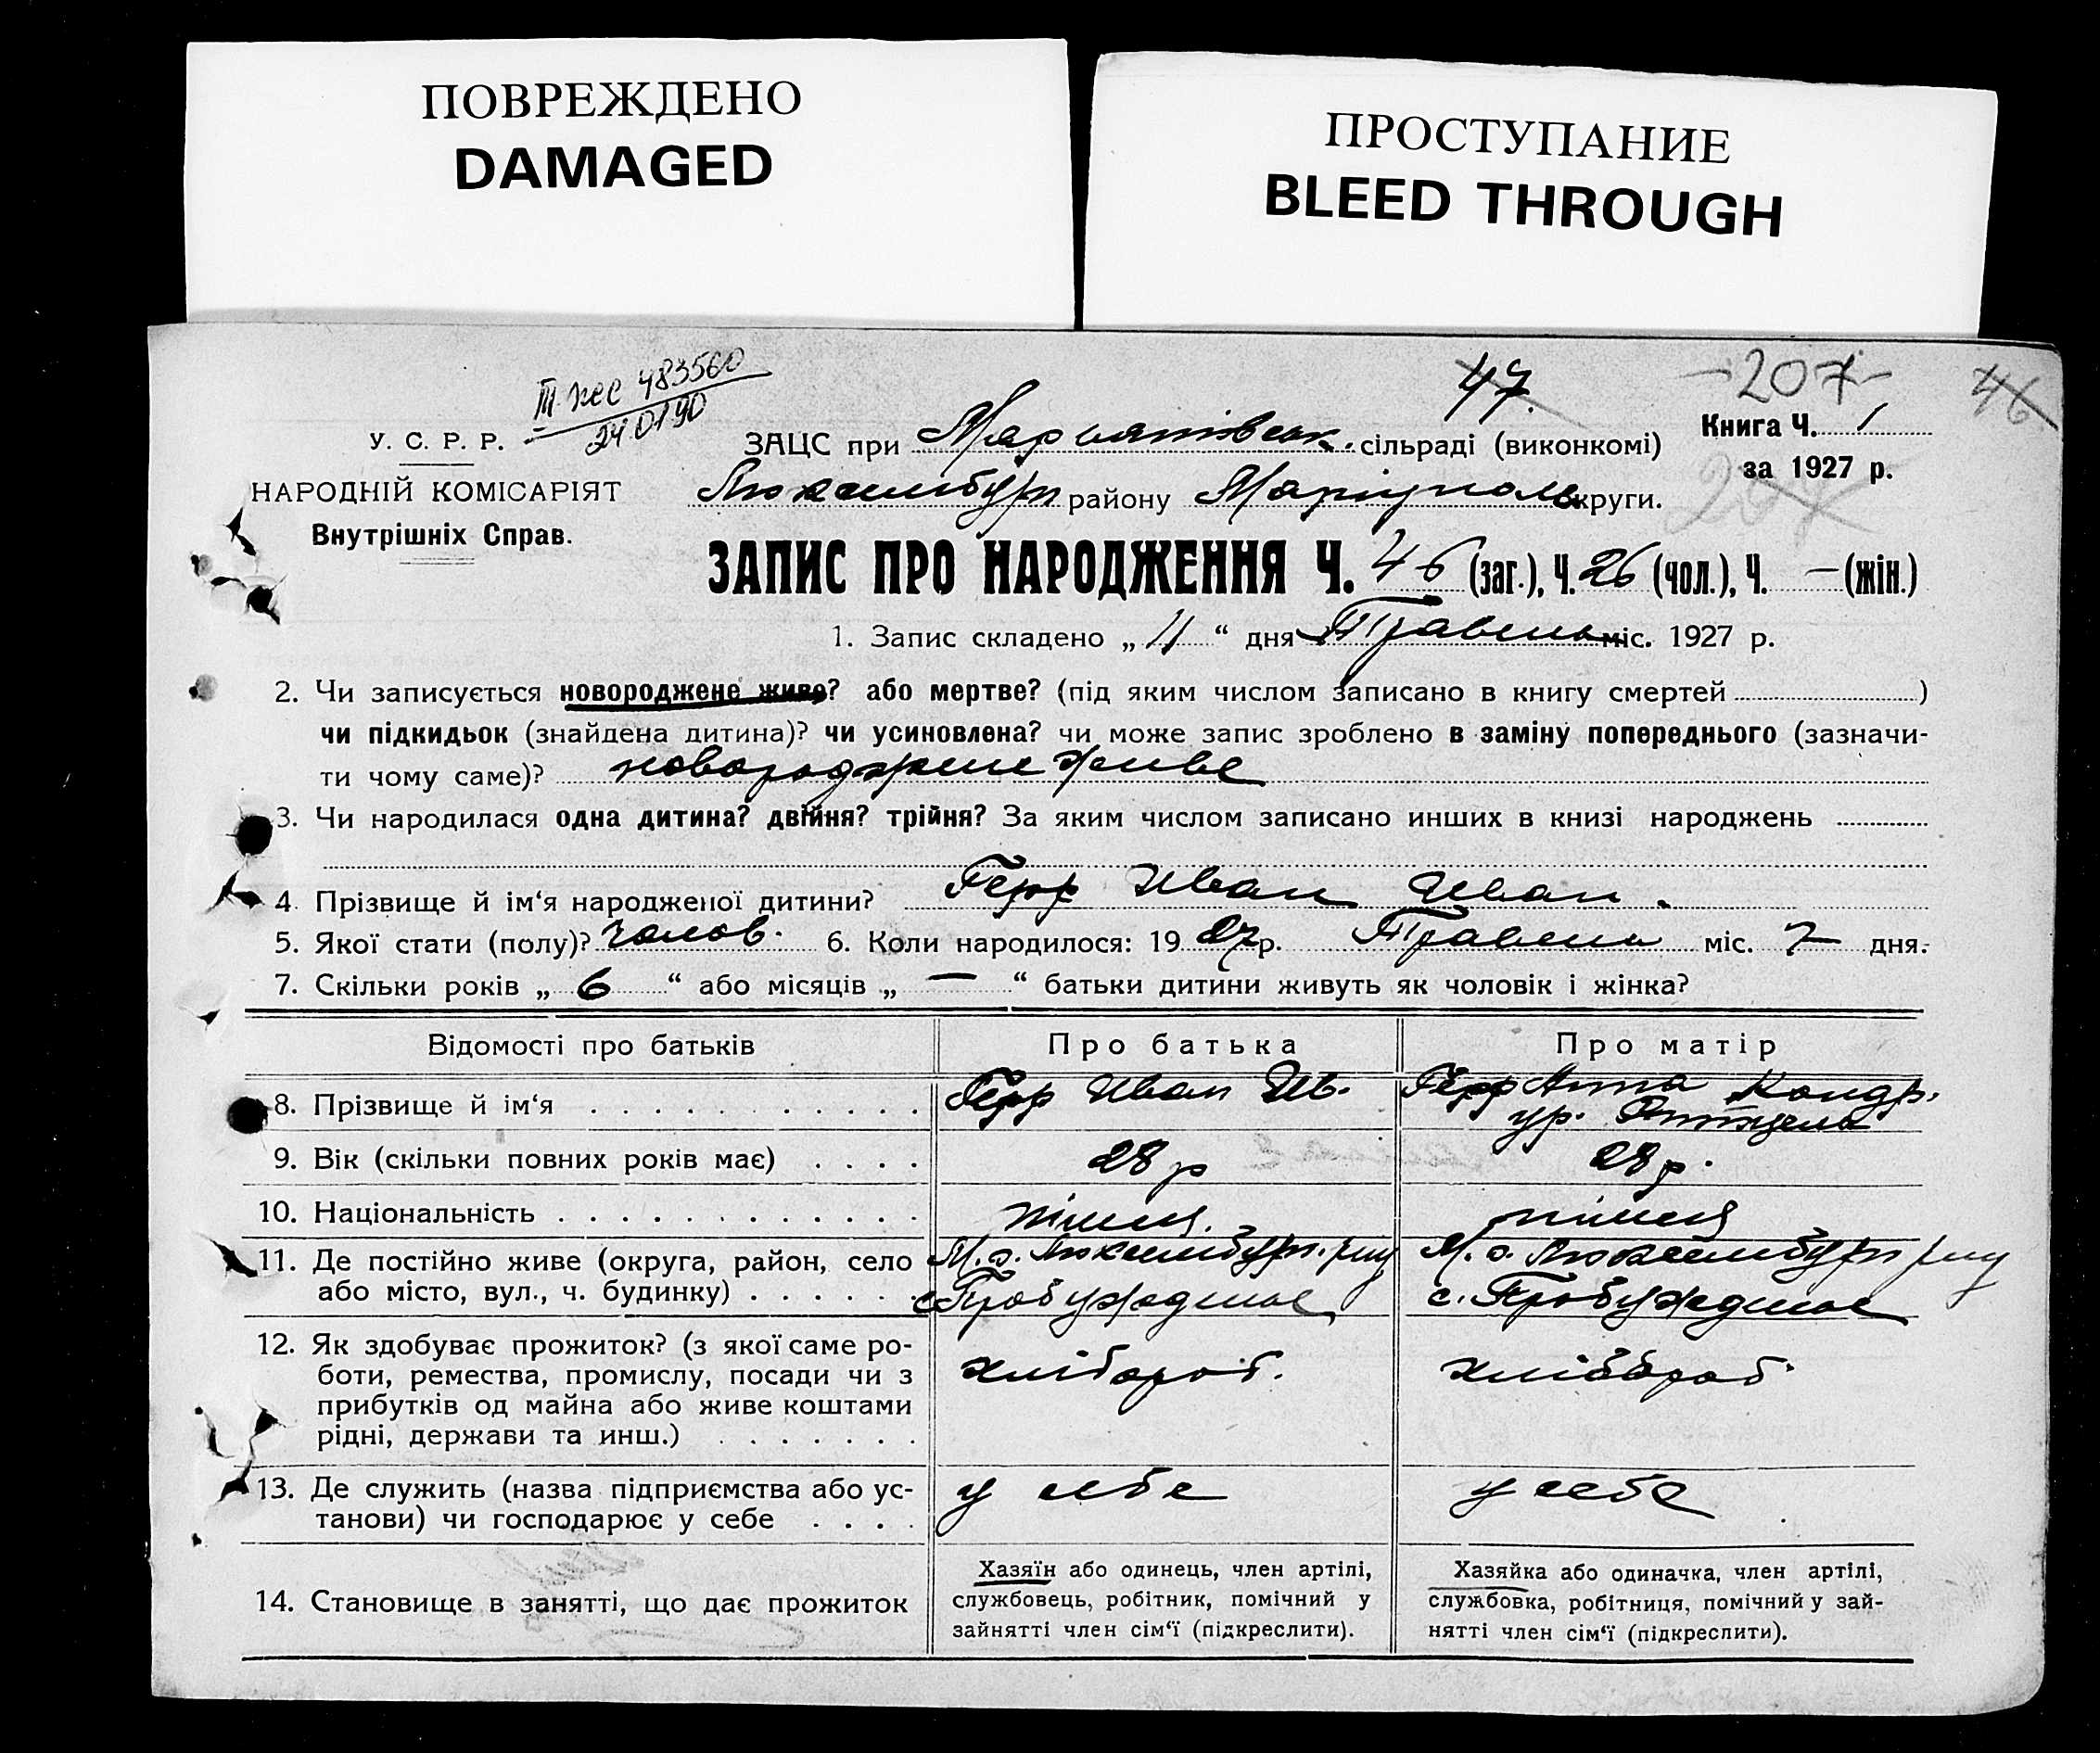 ПОВРЕЖДЕНО
DAMAGED
ПРОСТУПАНИЕ
BLEED THROUGH
47.
-207-
46
483560
У. С. Р. Р.
НАРОДНІЙ КОМІСАРІЯТ
Внутрішніх Справ.
ЗАЦС при Марьянівськ. сільраді (виконкомі)
Люксембург району Маріуполь округи.
Книга Ч. 1
за 1927 р.
207
ЗАПИС ПРО НАРОДЖЕННЯ Ч. 46 (заг.), Ч. 26 (чол.), Ч. — (жін.)
1. Запис складено „ 11 “ дня Травень міс. 1927 р.
2. Чи записується новороджене живе? або мертве? (під яким числом записано в книгу смертей )
чи підкидьок (знайдена дитина)? чи усиновлена? чи може запис зроблено в заміну попереднього (зазначи-
ти чому саме)? новороджене живе
3. Чи народилася одна дитина? двійня? трійня? За яким числом записано инших в книзі народжень
4. Прізвище й ім‘я народженої дитини? Герр Иван Иван.
5. Якої стати (полу)? Чолов. 6. Коли народилося: 19 27 р. Травень міс. 7 дня.
7. Скільки років „ 6 “ або місяців „ — “ батьки дитини живуть як чоловік і жінка?
Відомості про батьків Про батька Про матір
8. Прізвище й ім‘я Герр Иван Ив. Герр Анна Кондр.
ур.
9. Вік (скільки повних років має) 28 р 28 р.
10. Національність німець. німець
11. Де постійно живе (округа, район, село М. о. Люксембург. р-ну М. о. Люксембург р-ну
або місто, вул., ч. будинку) с. Пробужденіє с. Пробужденіє
12. Як здобуває прожиток? (з якої саме ро-
боти, ремества, промислу, посади чи з хлібороб. хлібороб
прибутків од майна або живе коштами
рідні, держави та инш.)
13. Де служить (назва підприємства або ус- у себе у себе
танови) чи господарює у себе
14. Становище в занятті, що дає прожиток
Хазяїн або одинець, член артілі,
службовець, робітник, помічний у
зайнятті член сім‘ї (підкреслити).
Хазяйка або одиначка, член артілі,
службовка, робітниця, помічний у зай-
нятті член сім‘ї (підкреслити).